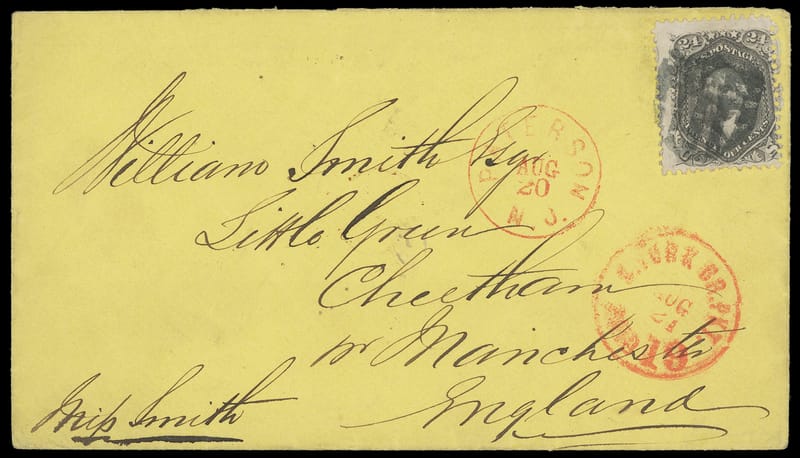 24 24
U.S. POSTAGE
PATERSON
AUG
20
N.J.
William Smith Esqr
Little Green
Cheetham
nr Manchester
England
Miss Smith
N. YORK BR. PKT
AUG
21
19